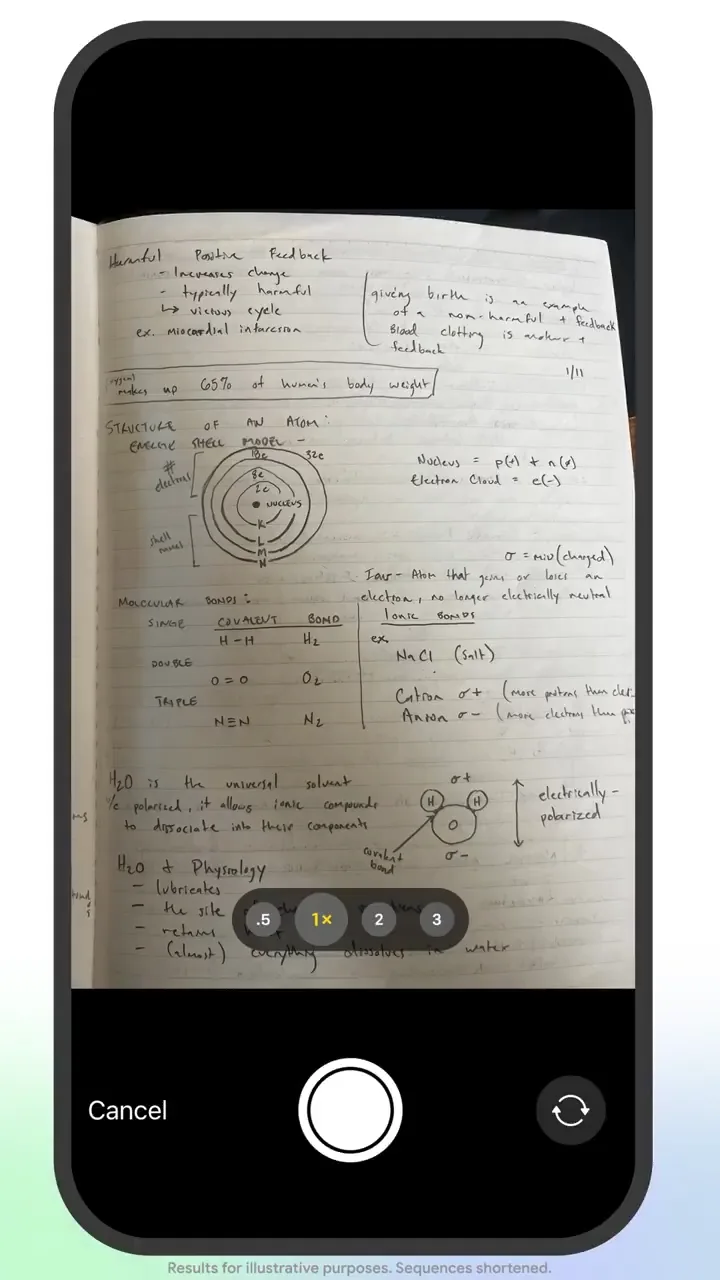 Harmful Positive Feedback
- Increases change
- typically harmful
↳ vicious cycle
ex. miocardial infarcsion
giving birth is an example
of a non-harmful + feedback
Blood clotting is another +
feedback
1/11
makes up 65% of human's body weight
STRUCTURE OF AN ATOM:
ENERGIE SHELL MODEL -
# electrons
18e 32e
8e
2e
NUCLEUS
K
L
M
N
shell names
Nucleus = p(+) + n(ø)
Electron Cloud = e(-)
σ = (charged)
Ion - Atom that gains or loses an
electron, no longer electrically neutral
MOLECULAR BONDS:
SINGE COVALENT BOND
H-H H₂
DOUBLE
O=O O₂
TRIPLE
N≡N N₂
IONIC BONDS
ex
NaCl (salt)
Cation σ+ (more protons than
Anion σ- (more electrons than
H₂O is the universal solvent
b/c polarized, it allows ionic compounds
to dissociate into these components
σ+
H H
O
σ-
covalent
bond
electrically -
polarized
H₂O & Physiology
- lubricates
- the site
- retains
- (almost) everything dissolves in water
.5 1× 2 3
Cancel
Results for illustrative purposes. Sequences shortened.